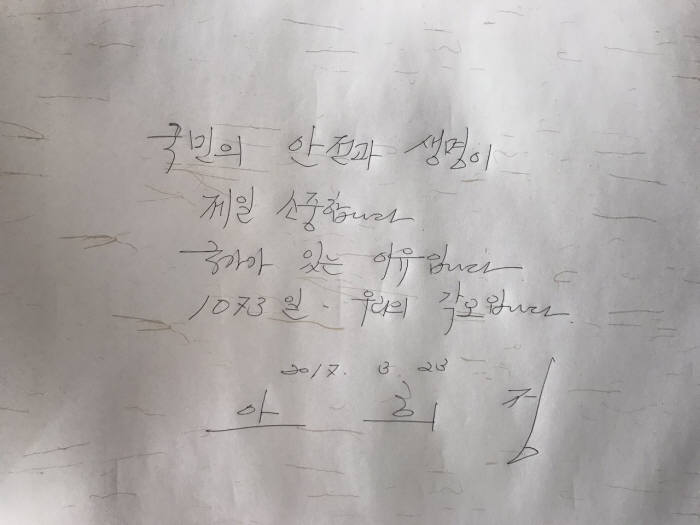 국민의 안전과 생명이
제일 소중합니다
국가가 있는 이유입니다
1073일 - 우리의 각오입니다
2017. 3. 23
안희정